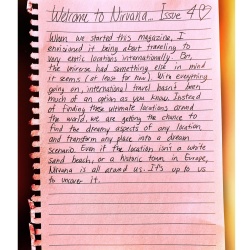 Welcome to Nirvana... Issue 4♡
When we started this magazine, I
envisioned it being about traveling to
very exotic locations internationally. But,
the universe had something else in mind
it seems (at least for now). With everything
going on, international travel hasn't been
much of an option as you know. Instead
of finding these ultimate locations around
the world, we are getting the chance to
find the dreamy aspects of any location
and transform any place into a dream
scenario. Even if the location isn't a white
sand beach, or a historic town in Europe,
Nirvana is all around us. It's up to us
to uncover it.